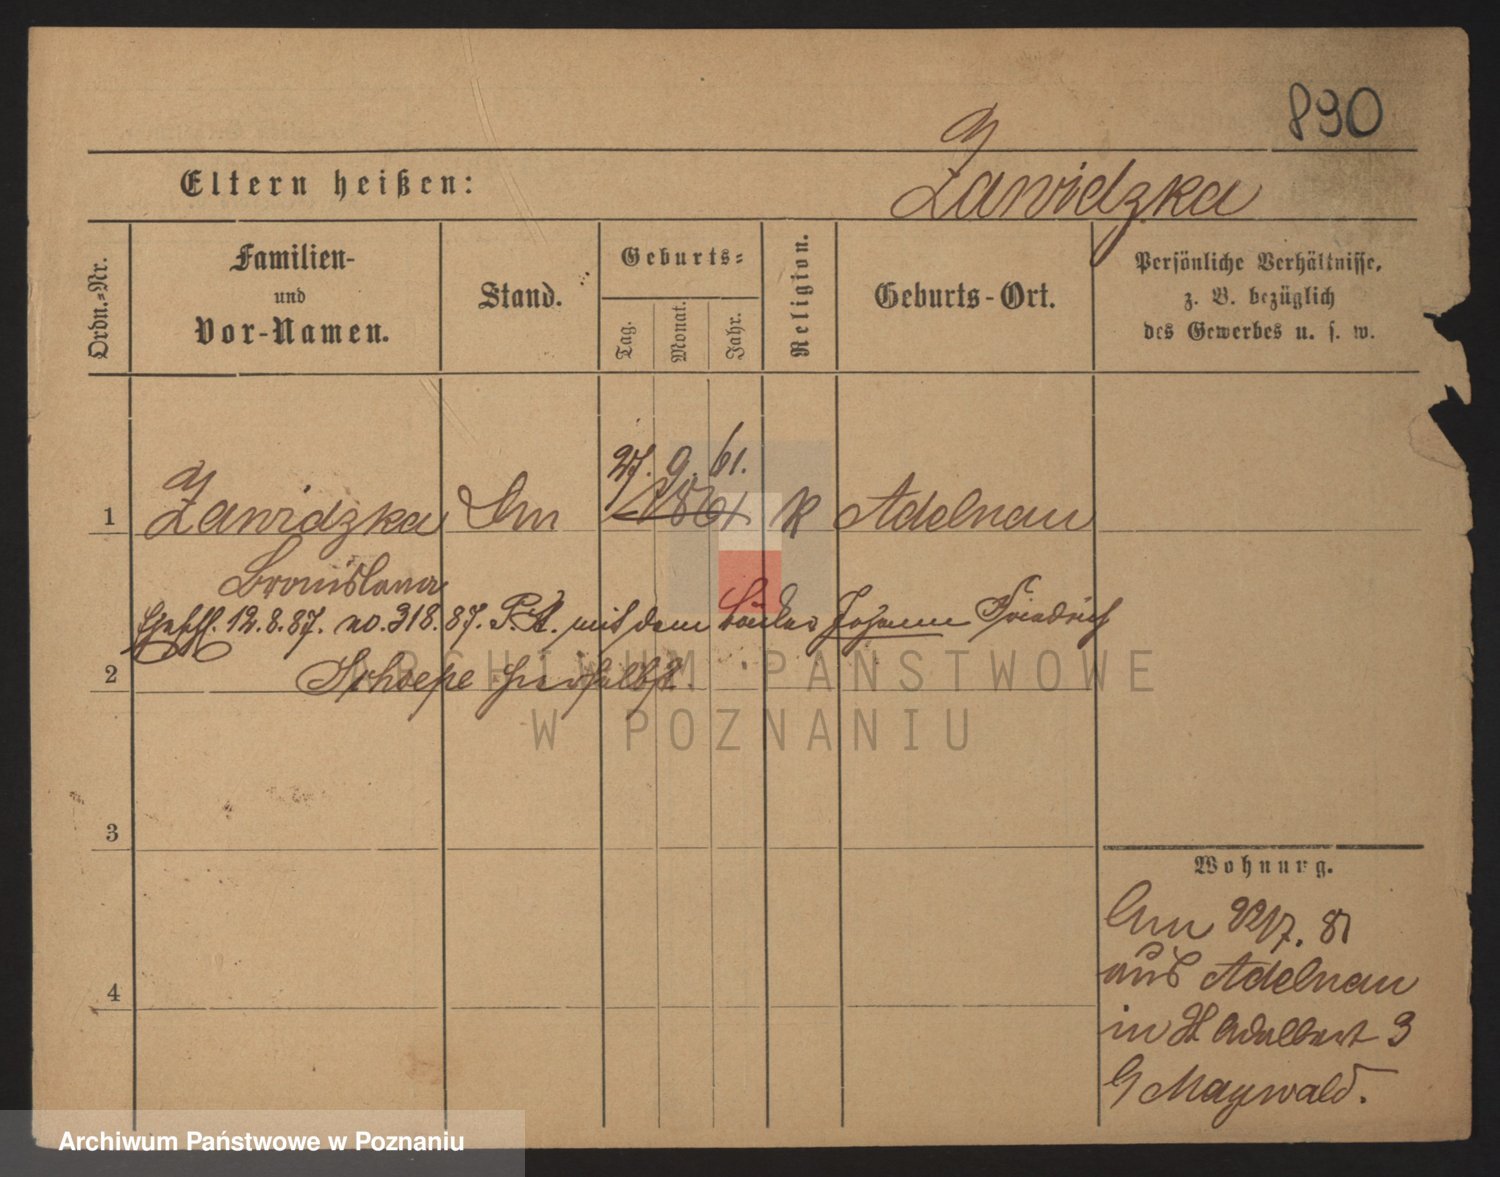 890
Eltern heißen:
Zawidzka
Ordn.-Nr.
Familien-
und
Vor-Namen.
Stand.
Geburts-
Tag.
Monat.
Jahr.
Religion.
Geburts-Ort.
Persönliche Verhältnisse,
z. B. bezüglich
des Gewerbes u. s. w.
1
Zawidzka
27. 9. 61.
1861
K
Adelnau
Bronislawa
12.8.87. no. 318.87. P. A. mit dem Johann Friedrich
2
Schoepe hierselbst.
ARCHIWUM PAŃSTWOWE
W POZNANIU
3
4
Wohnung.
aus Adelnau
in St Adalbert 3
Maywald.
Archiwum Państwowe w Poznaniu